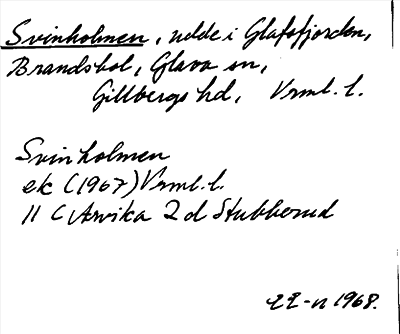 Svinholmen, udde i Glafsfjorden,
Brandsbol, Glava sn,
Gillbergs hd, Vrml. l.
Svinholmen
ek (1967) Vrml. l.
11 C Arvika 2 d Stubberud
22-11 1968.